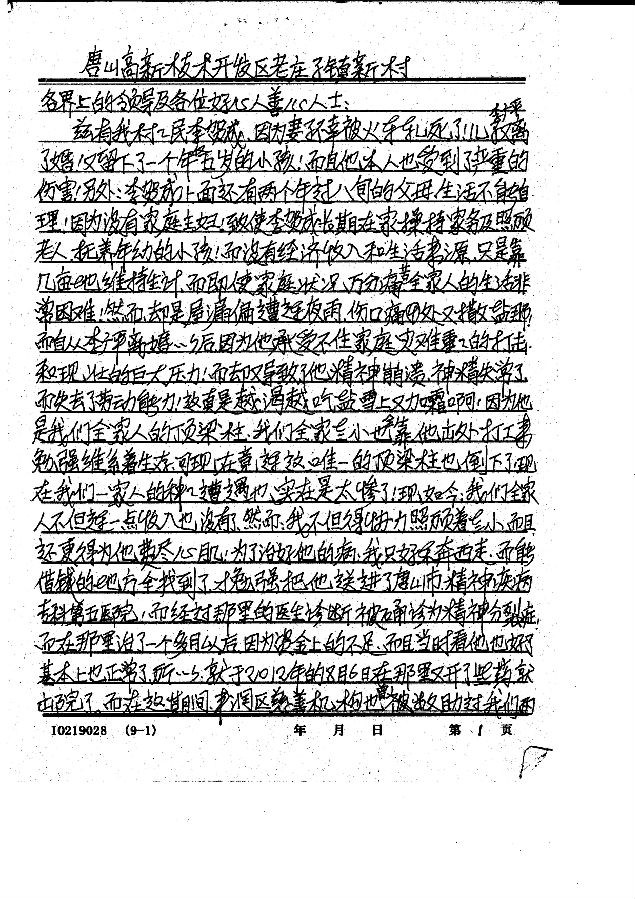 唐山高新技术开发区老庄子镇新村
各界上的领导及各位好心人善心人士:
兹有我村民李贺成,因为妻不幸被火车轧死了!儿李平离
了婚!又留下了一个年五岁的小孩!而且他本人也受到了严重的
伤害!另外:李贺成上面还有两个年过八旬的父母,生活不能自
理!因为没有家庭主妇!致使李贺成长期在家操持家务及照顾
老人,抚养年幼的小孩!而没有经济收入和生活来源,只是靠
几亩地维持生计,而即使家庭状况,万分痛苦全家人的生活非
常困难!然而,却是屋漏偏遭连夜雨,伤口痛处又撒盐那
而自从李平离婚以后,因为他承受不住家庭灾难重重的打击
和现状的巨大压力!而却又导致了他精神崩溃,神精失常了
而失去了劳动能力!这真是越渴越吃盐雪上又加霜啊!因为他
是我们全家人的顶梁柱,我们全家老小也靠他出外打工来
勉强维系着生存,可现在竟连这唯一的顶梁柱也倒下了,现
在我们一家人的种种遭遇也实在是太惨了!现如今,我们全家
人不但连一点收入也没有了,然而,我不但得协力照顾着老小,而且
还更得为他费尽心肌!为了治好他的病,我只好东奔西走,而能
借钱的地方全找到了,才勉强把他送进了唐山市精神疾病
专科第五医院,而经过那里的医生诊断被确诊为精神分裂症,
而在那里治了一个多月以后,因为资金上的不足,而且当时看他也好了
基本上也正常了,所以,就于2012年的8月6日在那里又开了些药就
出院了,而在这期间,丰润区慈善机构也曾被救助过我们两
10219028 (9-1) 年 月 日 第 1 页